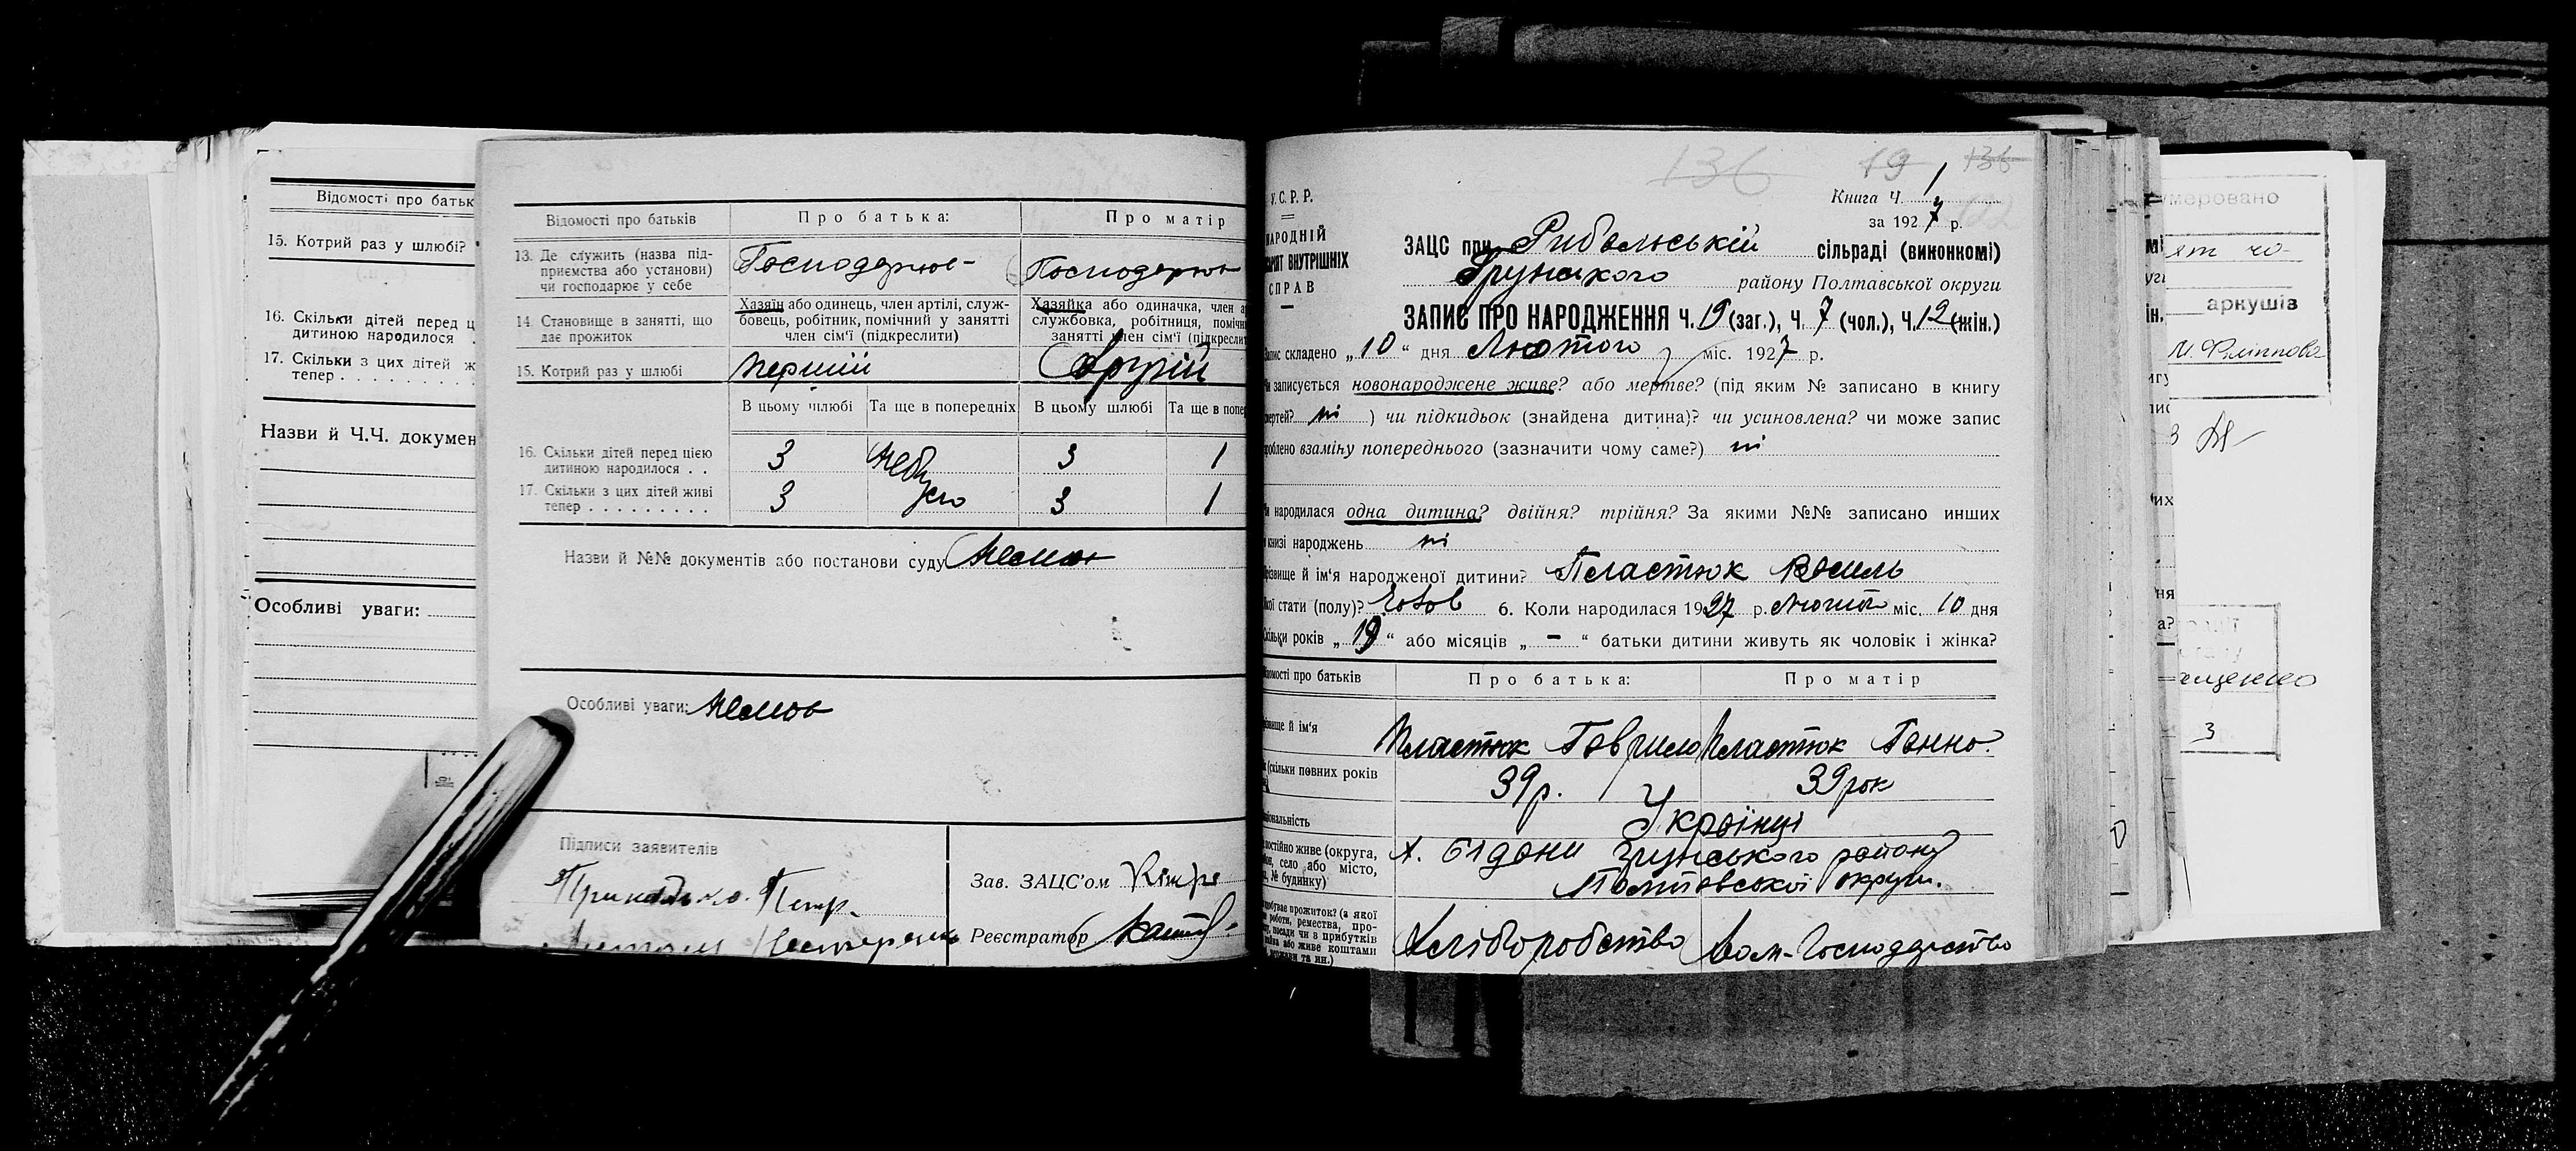 Відомості про батьк
15. Котрий раз у шлюбі?
16. Скільки дітей перед ц
дитиною народилося .
17. Скільки з цих дітей ж
тепер . . . . . . . . .
Назви й Ч.Ч. докумен
Особливі уваги:
Відомості про батьків
Про батька:
Про матір
13. Де служить (назва під-
приємства або установи)
чи господарює у себе
Господарює
Господарює
14. Становище в занятті, що
дає прожиток
Хазяїн або одинець, член артілі, служ-
бовець, робітник, помічний у занятті
член сім'ї (підкреслити)
Хазяйка або одиначка, член а
службовка, робітниця, поміч
занятті член сім'ї (підкреслит
15. Котрий раз у шлюбі
перший
другий
В цьому шлюбі
Та ще в попередніх
В цьому шлюбі
Та ще в попе
16. Скільки дітей перед цією
дитиною народилося . .
3
Небу
3
1
17. Скільки з цих дітей живі
тепер . . . . . . . . .
3
ло
3
1
Назви й №№ документів або постанови суду Немає
Особливі уваги: Немає
Підписи заявителів
Петр
Зав. ЗАЦС'ом
Реєстратор
136 19 136
У.С.Р.Р.
НАРОДНІЙ
ВНУТРІШНІХ
СПРАВ
Книга Ч. 1
за 1927 р.
ЗАЦС при Рибальській сільраді (виконкомі)
Грунського району Полтавської округи
ЗАПИС ПРО НАРОДЖЕННЯ Ч. 19 (заг.), Ч. 7 (чол.), Ч. 12 (жін.)
Запис складено „10“ дня Лютого міс. 1927 р.
записується новонароджене живе? або мертве? (під яким № записано в книгу
смертей? ні ) чи підкидьок (знайдена дитина)? чи усиновлена? чи може запис
зроблено взаміну попереднього (зазначити чому саме?) ні
народилася одна дитина? двійня? трійня? За якими №№ записано инших
книзі народжень ні
прізвище й ім'я народженої дитини? Пластюк Василь
якої стати (полу)? Чолов 6. Коли народилася 1927 р. Лютий міс. 10 дня
Скільки років „19“ або місяців „—“ батьки дитини живуть як чоловік і жінка?
Відомості про батьків
Про батька:
Про матір
прізвище й ім'я
Пластюк Гаврило
Пластюк Ганна
(скільки повних років
39 р.
39 рок
національність
Українці
постійно живе (округа,
село або місто,
№ будинку)
х. Бідани Грунського району
Полтавської округи.
добуває прожиток? (з якої
роботи, ремества, про-
посади чи з прибутків
або живе коштами
та ин.)
Хліборобство
Дом-Господарство
умеровано
ят чо-
аркушів
И. Філіппова
3